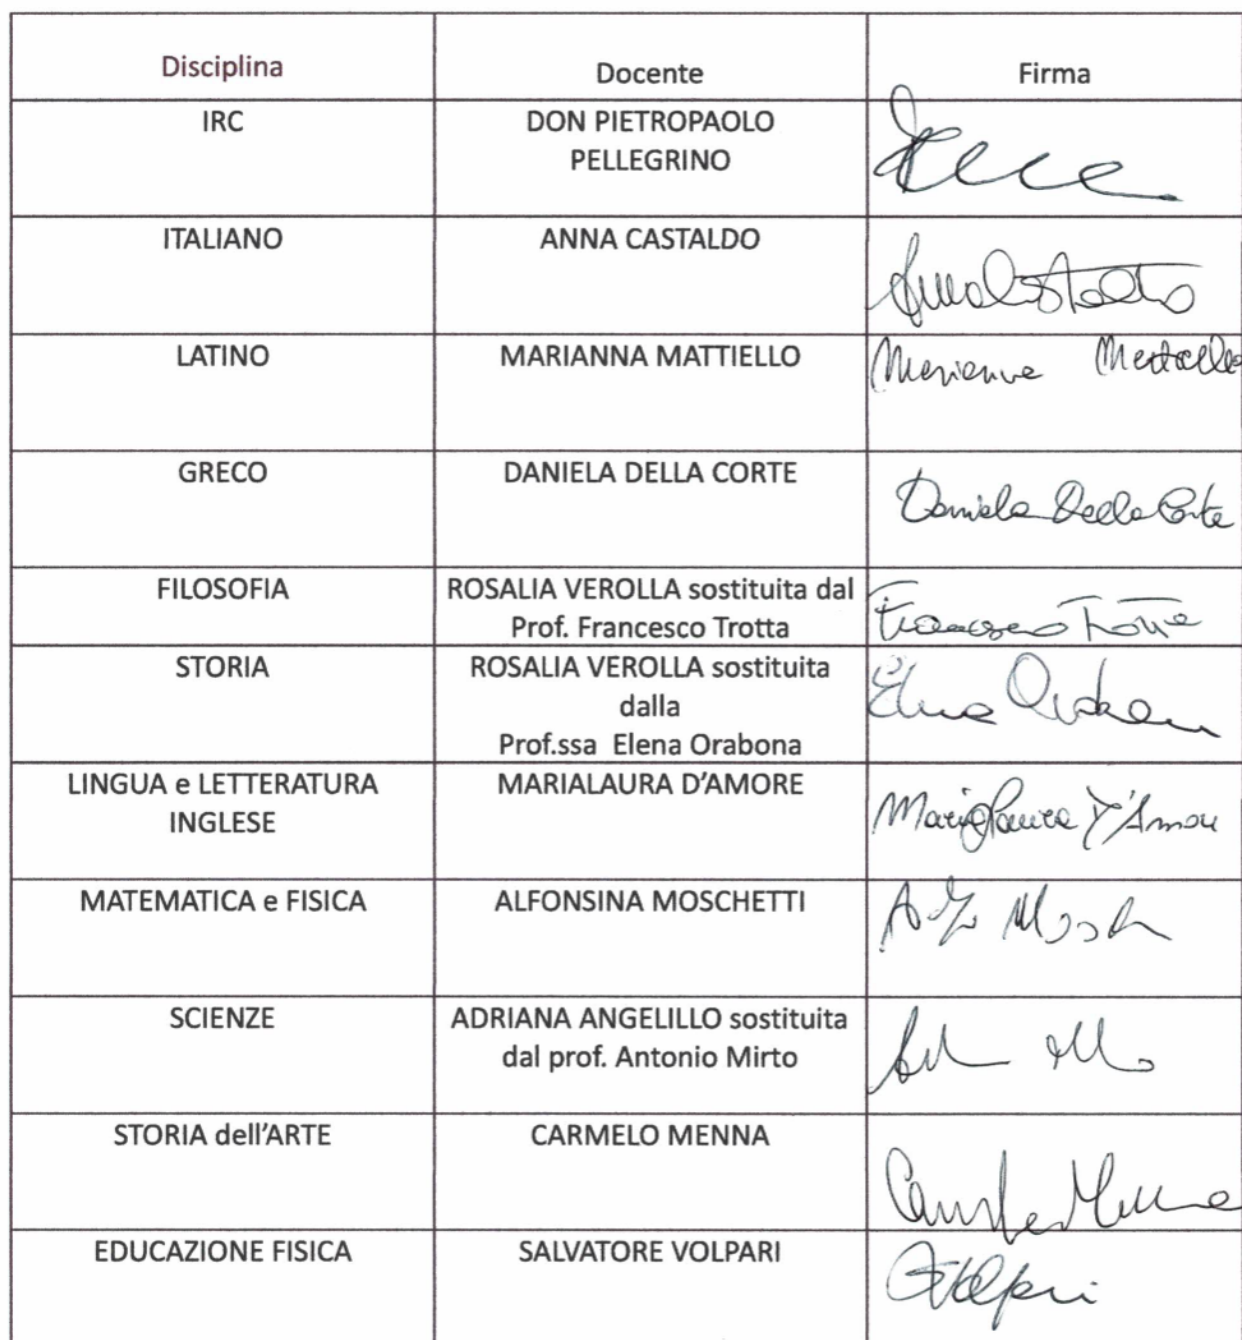 Disciplina Docente Firma
IRC DON PIETROPAOLO
PELLEGRINO
ITALIANO ANNA CASTALDO
Anna Castaldo
LATINO MARIANNA MATTIELLO Marianna Mattiello
GRECO DANIELA DELLA CORTE
Daniela Della Corte
FILOSOFIA ROSALIA VEROLLA sostituita dal
Prof. Francesco Trotta Francesco Trotta
STORIA ROSALIA VEROLLA sostituita
dalla
Prof.ssa Elena Orabona
LINGUA e LETTERATURA MARIALAURA D'AMORE
INGLESE Marialaura D'Amore
MATEMATICA e FISICA ALFONSINA MOSCHETTI
SCIENZE ADRIANA ANGELILLO sostituita
dal prof. Antonio Mirto
STORIA dell'ARTE CARMELO MENNA
Carmelo Menna
EDUCAZIONE FISICA SALVATORE VOLPARI
SVolpari